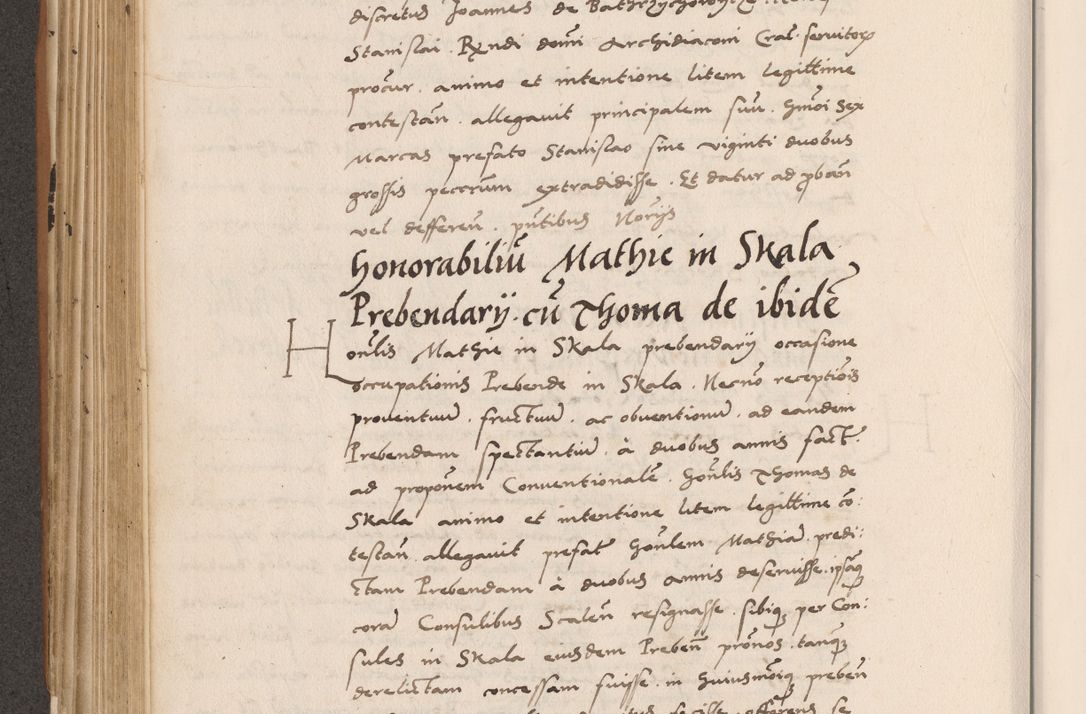 discretus Joannes de
Stanislai. Rx̄ndi domī Archidiaconi Craƚ. servitorꝭ
procur. animo et intentione litem legittime
contestan̄. allegavit principalem suū. hmōi sex
Marcas prefato Stanislao sine viginti duobus
grossis peccun̄ extradidisse. Et datur ad ꝓban̄
vel differen̄. pn̄tibus Norijs
Honorabiliū Mathie in Skala
Prebendarij. cū Thoma de ibidē
Hon̄lis Mathie in Skala prebendarij occasione
occupationis Prebende in Skala. Necnō receptiōis
proventuū. fructuū. ac obventionū. ad eandem
Prebendam spectantiū. à duobus annis fact.
ad proponem Conventionalē. hon̄lis Thomas de
Skala animo et intentione litem legittime cō:
testan̄. allegavit prefat hon̄lem Mathiā. predi:
ctam Prebendam à duobus annis deservisse. ipsāqꝫ
coram Consulibus Scalen̄ resignasse. sibiqꝫ per Con:
sules in Skala eiusdem Preben̄ prōnos. tanqꝫ
derelictam concessam fuisse. in huiusmōiqꝫ preben̄
fecisse. offeren̄s se